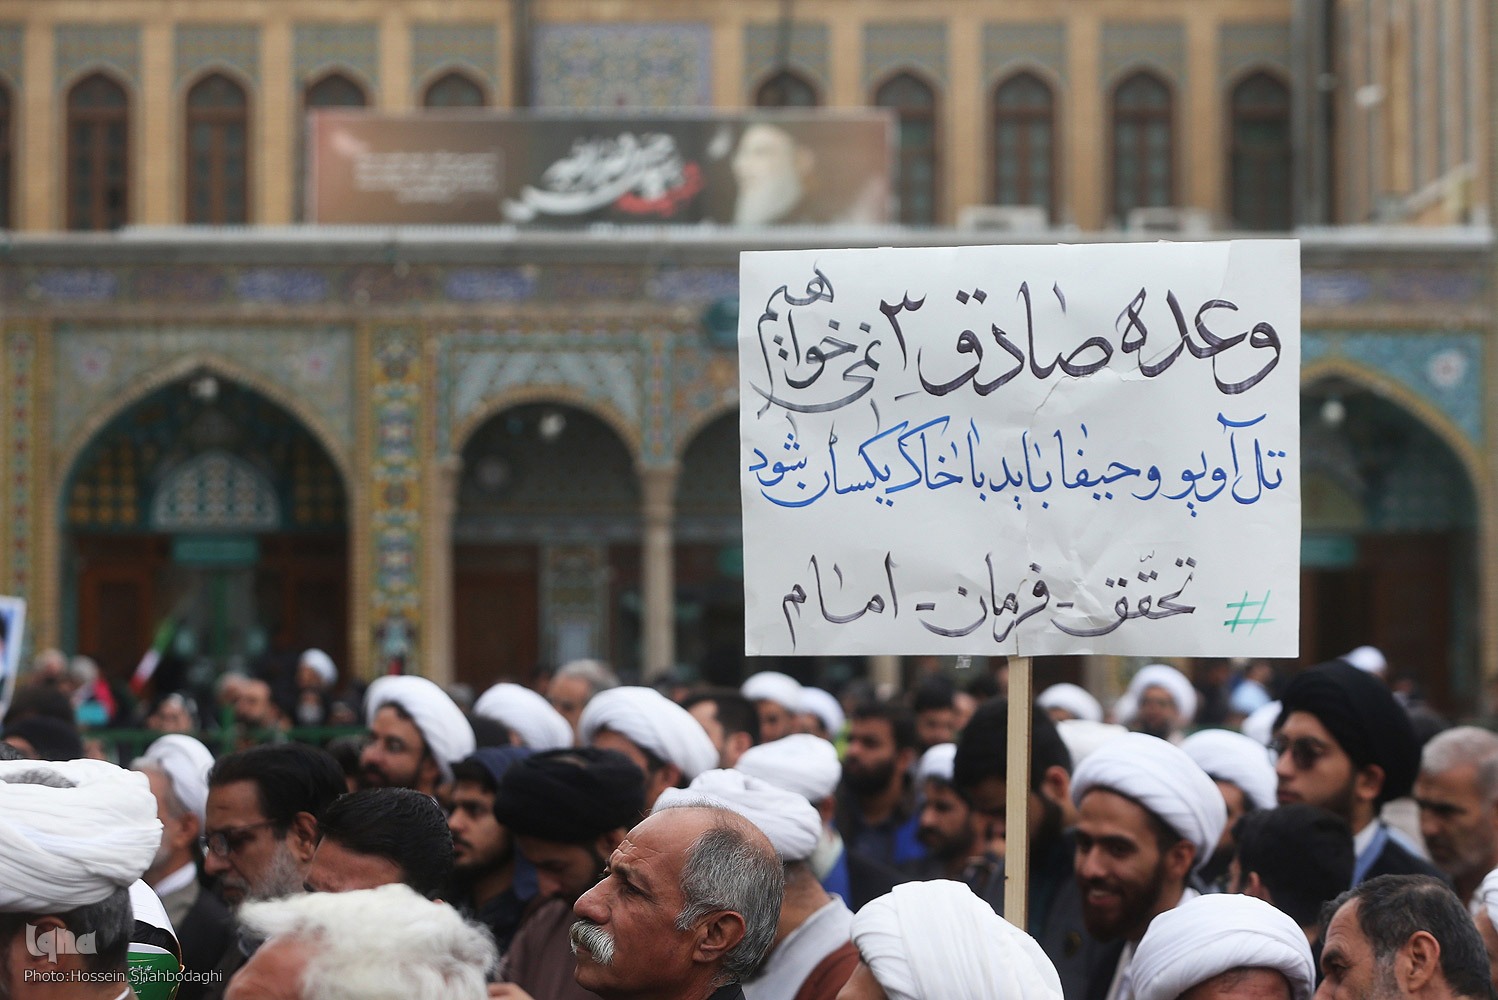 وعده صادق ۳ نمی‌خواهیم
تل آویو و حیفا باید با خاک یکسان شود
# تحقّق - فرمان - امام
iqna
Photo:Hossein Shahbodaghi